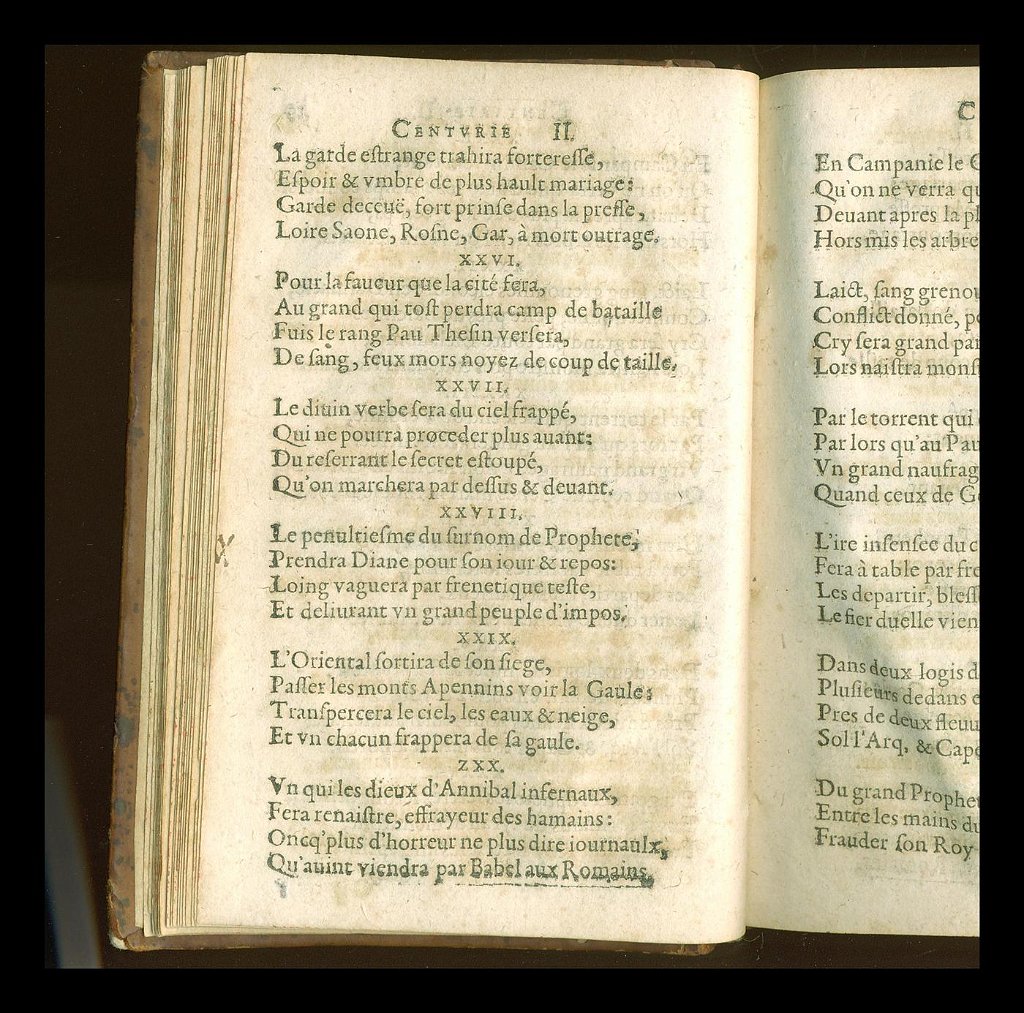 CENTVRIE II.
La garde eſtrange trahira fortereſſe,
Eſpoir & vmbre de plus hault mariage:
Garde deceuë, fort prinſe dans la preſſe,
Loire Saone, Roſne, Gar, à mort outrage.
XXVI.
Pour la faueur que la cité fera,
Au grand qui toſt perdra camp de bataille
Fuis le rang Pau Theſin verſera,
De ſang, feux mors noyez de coup de taille.
XXVII.
Le diuin verbe ſera du ciel frappé,
Qui ne pourra proceder plus auant:
Du reſerrant le ſecret eſtoupé,
Qu'on marchera par deſſus & deuant.
XXVIII.
Le penultieſme du ſurnom de Prophete,
Prendra Diane pour ſon iour & repos:
Loing vaguera par frenetique teſte,
Et deliurant vn grand peuple d'impos.
XXIX.
L'Oriental ſortira de ſon ſiege,
Paſſer les monts Apennins voir la Gaule:
Tranſpercera le ciel, les eaux & neige,
Et vn chacun frappera de ſa gaule.
ZXX.
Vn qui les dieux d'Annibal infernaux,
Fera renaiſtre, effrayeur des hamains:
Oncq'plus d'horreur ne plus dire iournaulx,
Qu'auint viendra par Babel aux Romains.
C
En Campanie le
Qu'on ne verra
Deuant apres la
Hors mis les arbre
Laict, ſang grenou
Conflict donné,
Cry ſera grand
Lors naiſtra monſ
Par le torrent qui
Par lors qu'au Pau
Vn grand naufrag
Quand ceux de
L'ire inſenſee du
Fera à table par fre
Les departir, bleſſ
Le fier duelle vien
Dans deux logis
Pluſieurs dedans
Pres de deux fleuu
Sol l'Arq, & Cape
Du grand Prophet
Entre les mains du
Frauder ſon Roy